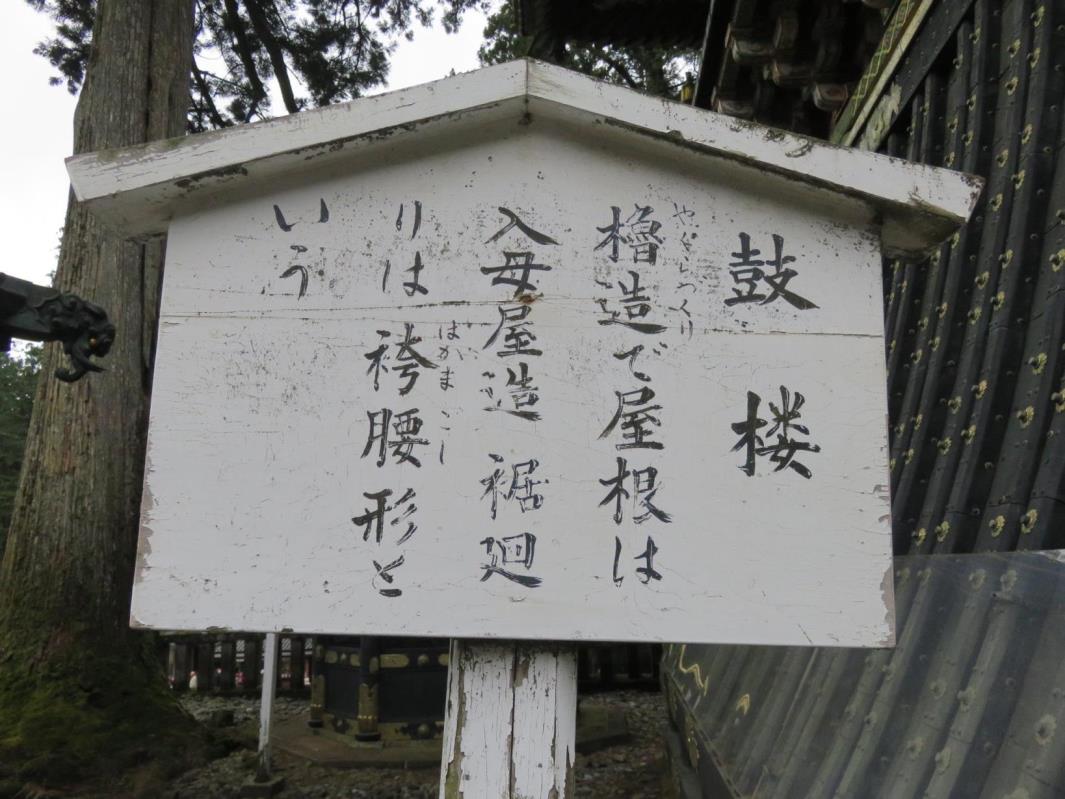 鼓楼
やぐらつくり
櫓造で屋根は
入母屋造 裾廻
りは袴腰形と
はかまごし
いう